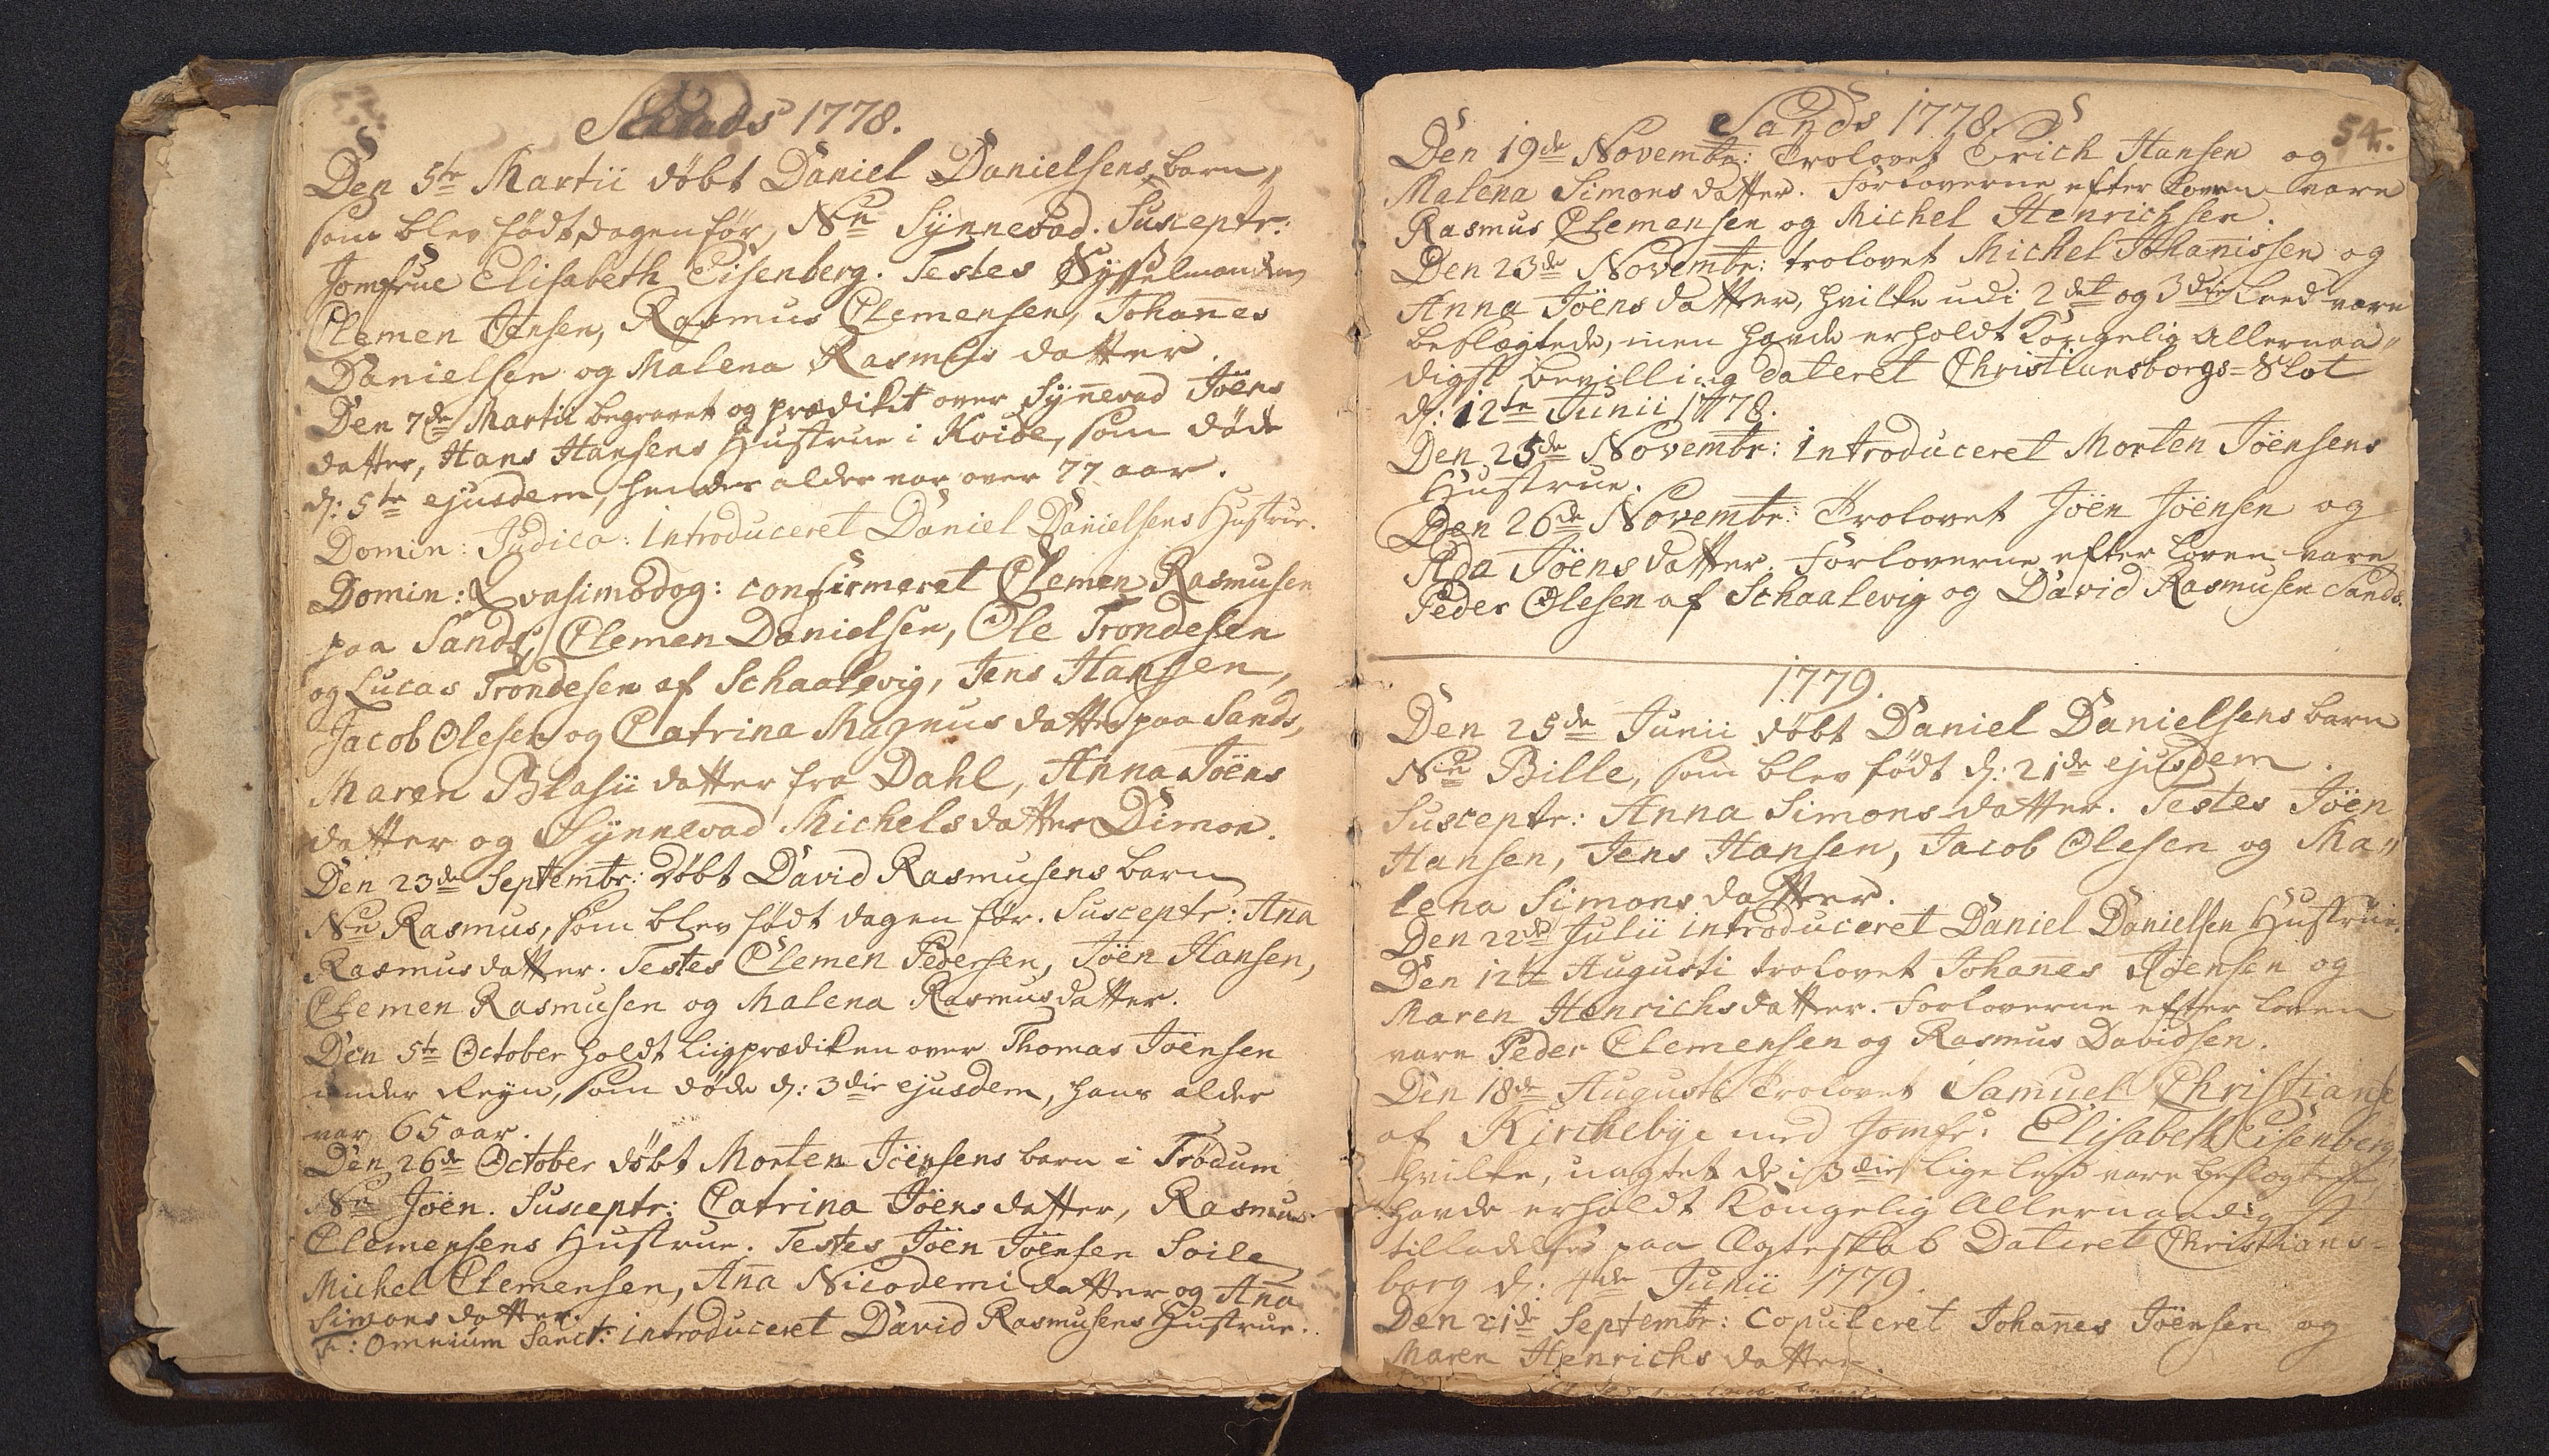 Sands 1778.
Den 5te Martii döbt Daniel Danielsens barn,
som blev födt dagen för, Nn Synnevad. Susceptr:
Jomfrue Elisabeth Eisenberg. Testes Sysselmanden
Clemen Jensen, Rasmus Clemensen, Johan̄es
Danielsen og Malena Rasmus datter.
Den 7de Martii begravet og prædiket over Syn̄evad Joëns
datter, Hans Hansens Hustrue i Kvibe, som döde
d: 5te ejusdem, hendes alder var over 77 aar.
Domin: Judica: introduceret Daniel Danielsens Hustrue.
Domin: Qvasimodog: confirmeret Clemen Rasmusen
paa Sands, Clemen Danielsen, Ole Trondesen
og Lucas Trondesen af Schaalevig, Jens Hansen,
Jacob Olesen og Catrina Magnus datter paa Sands,
Maren Blasii datter fra Dahl, Anna Joëns
datter og Synnevad Michels datter Dimon.
Den 23de Septembr: döbt David Rasmusens barn
Nn Rasmus, som blev födt dagen för. Susceptr: An̄a
Rasmusdatter. Testes Clemen Pedersen, Joën Hansen,
Clemen Rasmusen og Malena Rasmusdatter.
Den 5te October holdt liigprædiken over Thomas Joënsen
under Reyn, som döde d: 3die ejusdem, hans alder
var 65 aar.
Den 26de October döbt Morten Joënsens barn i Trödum
Nn Joën. Susceptr: Catrina Joëns datter, Rasmus
Clemensens Hustrue. Testes Joën Joënsen Soile
Michel Clemensen, An̄a Nicodemi datter og An̄a
Simons datter.
F: Omnium Sanct: introduceret David Rasmusens Hustrue.
Sands 1778.
54.
Den 19de Novembr: Trolovet Erich Hansen og
Malena Simons datter. Forloverne efter Loven vare
Rasmus Clemensen og Michel Henrichsen.
Den 23de Novembr: trolovet Michel Johan̄issen og
Anna Joëns datter, hvilke udi 2det og 3die Leed vare
beslægtede, men havde erholdt Kongelig Allernaa„
digst bevilling dateret Christiansborgs=Slot
d: 12te Junii 1778.
Den 25de Novembr: introduceret Morten Joënsens
Hustrue.
Den 26de Novembr: Trolovet Joën Joënsen og
Ada Joëns datter. Forloverne efter loven vare
Peder Olesen af Schaalevig og David Rasmusen Sands.
1779.
Den 25de Junii döbt Daniel Danielsens barn
Nn Bille, som blev födt d: 21de ejusdem.
Susceptr: Anna Simons datter. Testes Joën
Hansen, Jens Hansen, Jacob Olesen og Ma„
lena Simons datter.
Den 22de Julii introduceret Daniel Danielsen Hustrue.
Den 12te Augusti trolovet Johan̄es Joensen og
Maren Henrichsdatter. Forloverne efter loven
vare Peder Clemensen og Rasmus Davidsen.
Den 18de Augusti Trolovet Samuel Christians
af Kirchebye med Jomfr: Elisabeth Eisenberg,
hvilke, uagtet de i 3die lige leed vare beslægtede,
havde erholdt Kongelig Allernaadigst
tilladelse paa Ægteskab Dateret Christians-
borg d: 4de Junii 1779.
Den 21de Septembr: Copuleret Johan̄es Joënsen og
Maren Henrichs datter.